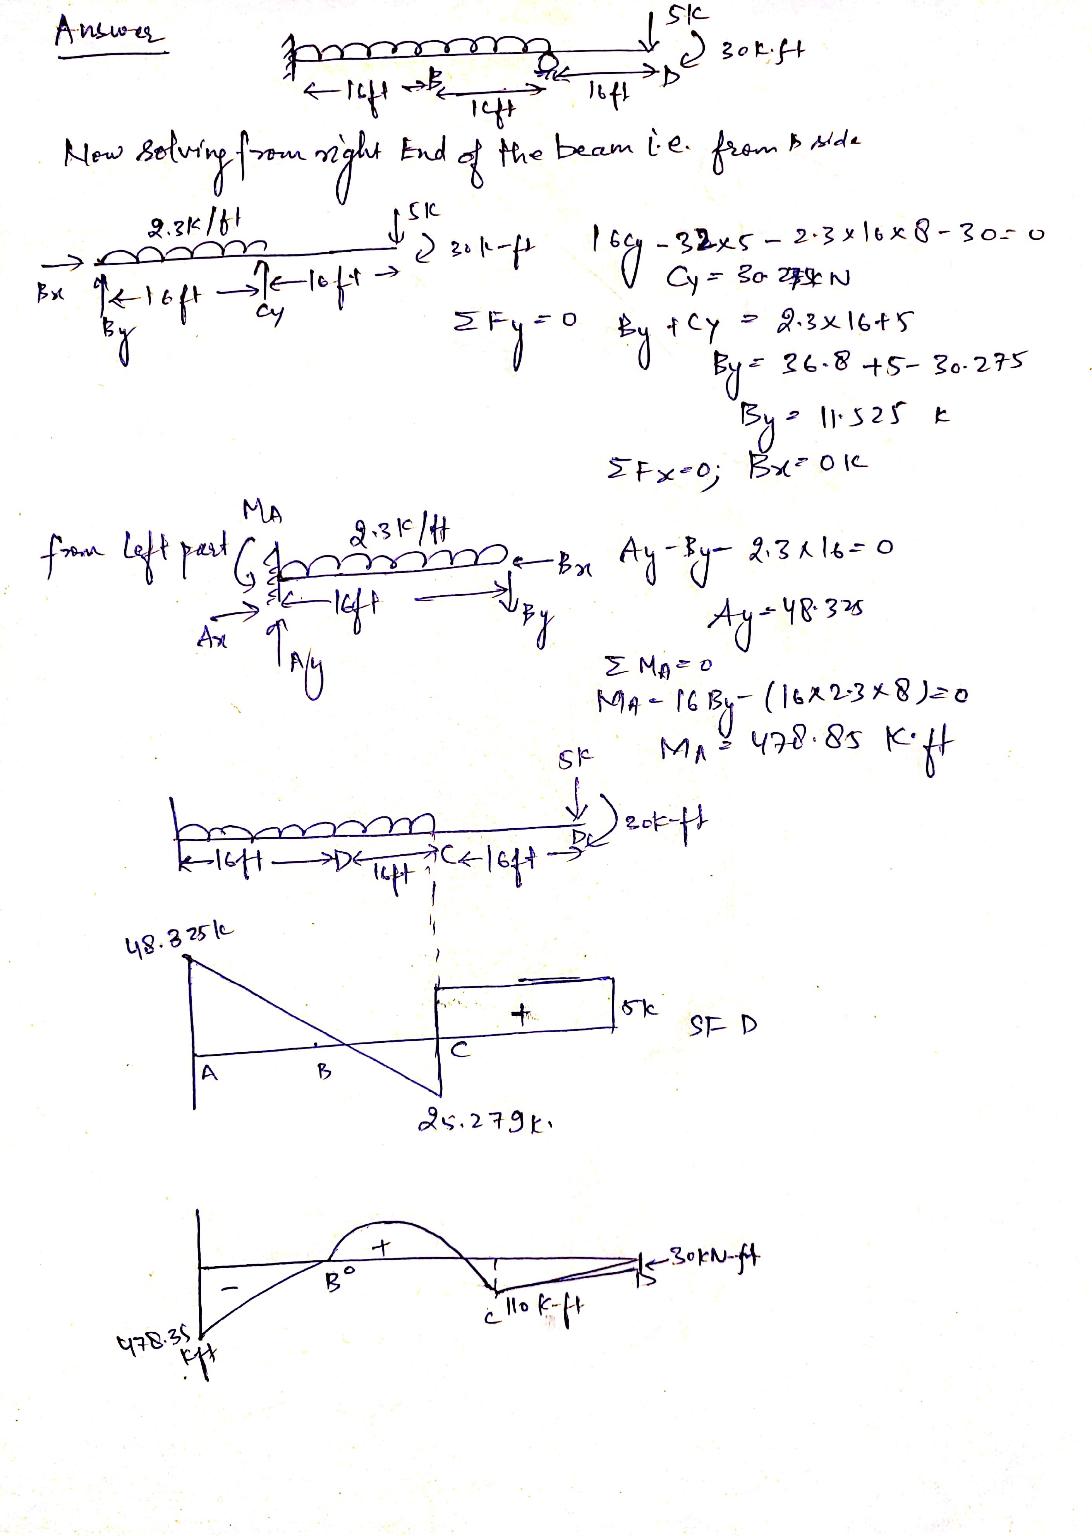 Answer
5K
30K.ft
16ft B 16ft 16ft D
Now solving from right End of the beam i.e. from B side
2.3K/ft 5K
30 k-ft
Bx 16ft 16ft
By Cy
16Cy - 32x5 - 2.3x16x8 - 30=0
Cy = 30.275KN
ΣFy=0 By + Cy = 2.3x16+5
By = 36.8 +5- 30.275
By = 11.525 K
ΣFx=0; Bx=0K
MA
from left part 2.3K/ft Bx
Ax 16ft By
Ay
Ay-By- 2.3x16=0
Ay=48.325
ΣMA=0
MA - 16By- (16x2.3x8)=0
MA = 478.85 K.ft
5K
30k-ft
16ft D 16ft C 16ft D
48.325k
+ 5k SFD
A B C
25.279k.
+
- B 0 30KN-ft
C 110 K-ft
478.35
Kft